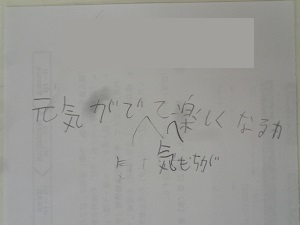 元気がでて楽しくなるか
気もちが